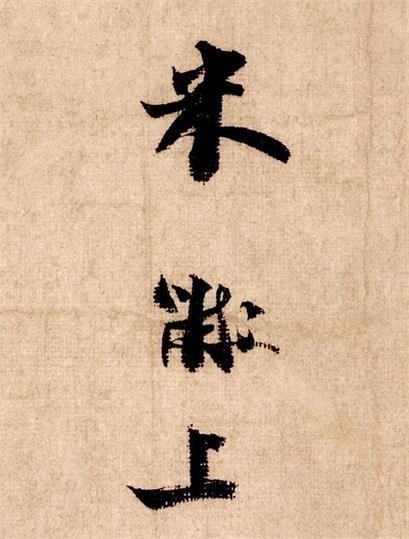 米
黻
上